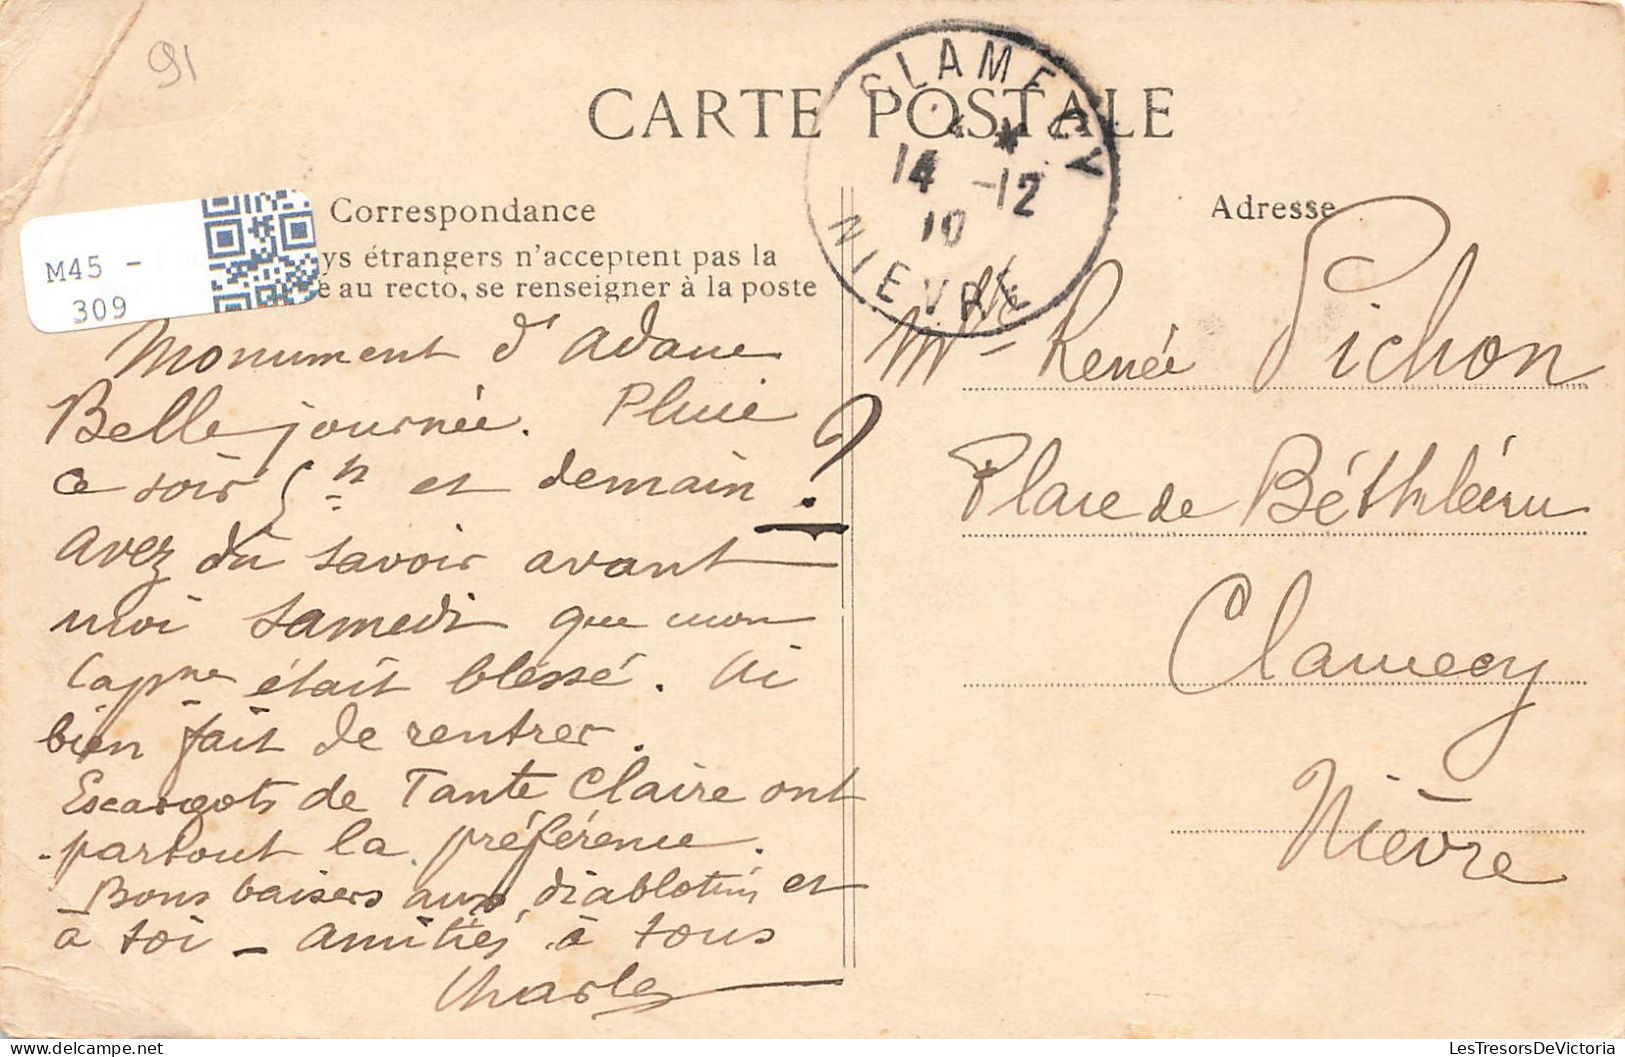 91
CARTE POSTALE
CLAMECY
14 -12
10
NIEVRE
M45 -
309
Correspondance
ys étrangers n'acceptent pas la
e au recto, se renseigner à la poste
Monument d'Adam
Belle journée. Pluie
ce soir et demain ?
avez dû savoir avant
moi samedi que mon
Capne était blessé. Ai
bien fait de rentrer.
Escargots de Tante Claire ont
partout la préférence.
Bons baisers aux diablotins et
à toi - amitiés à tous
Charles
Adresse
Mlle Renée Pichon
Place de Béthléem
Clamecy
Nièvre
LesTresorsDeVictoria